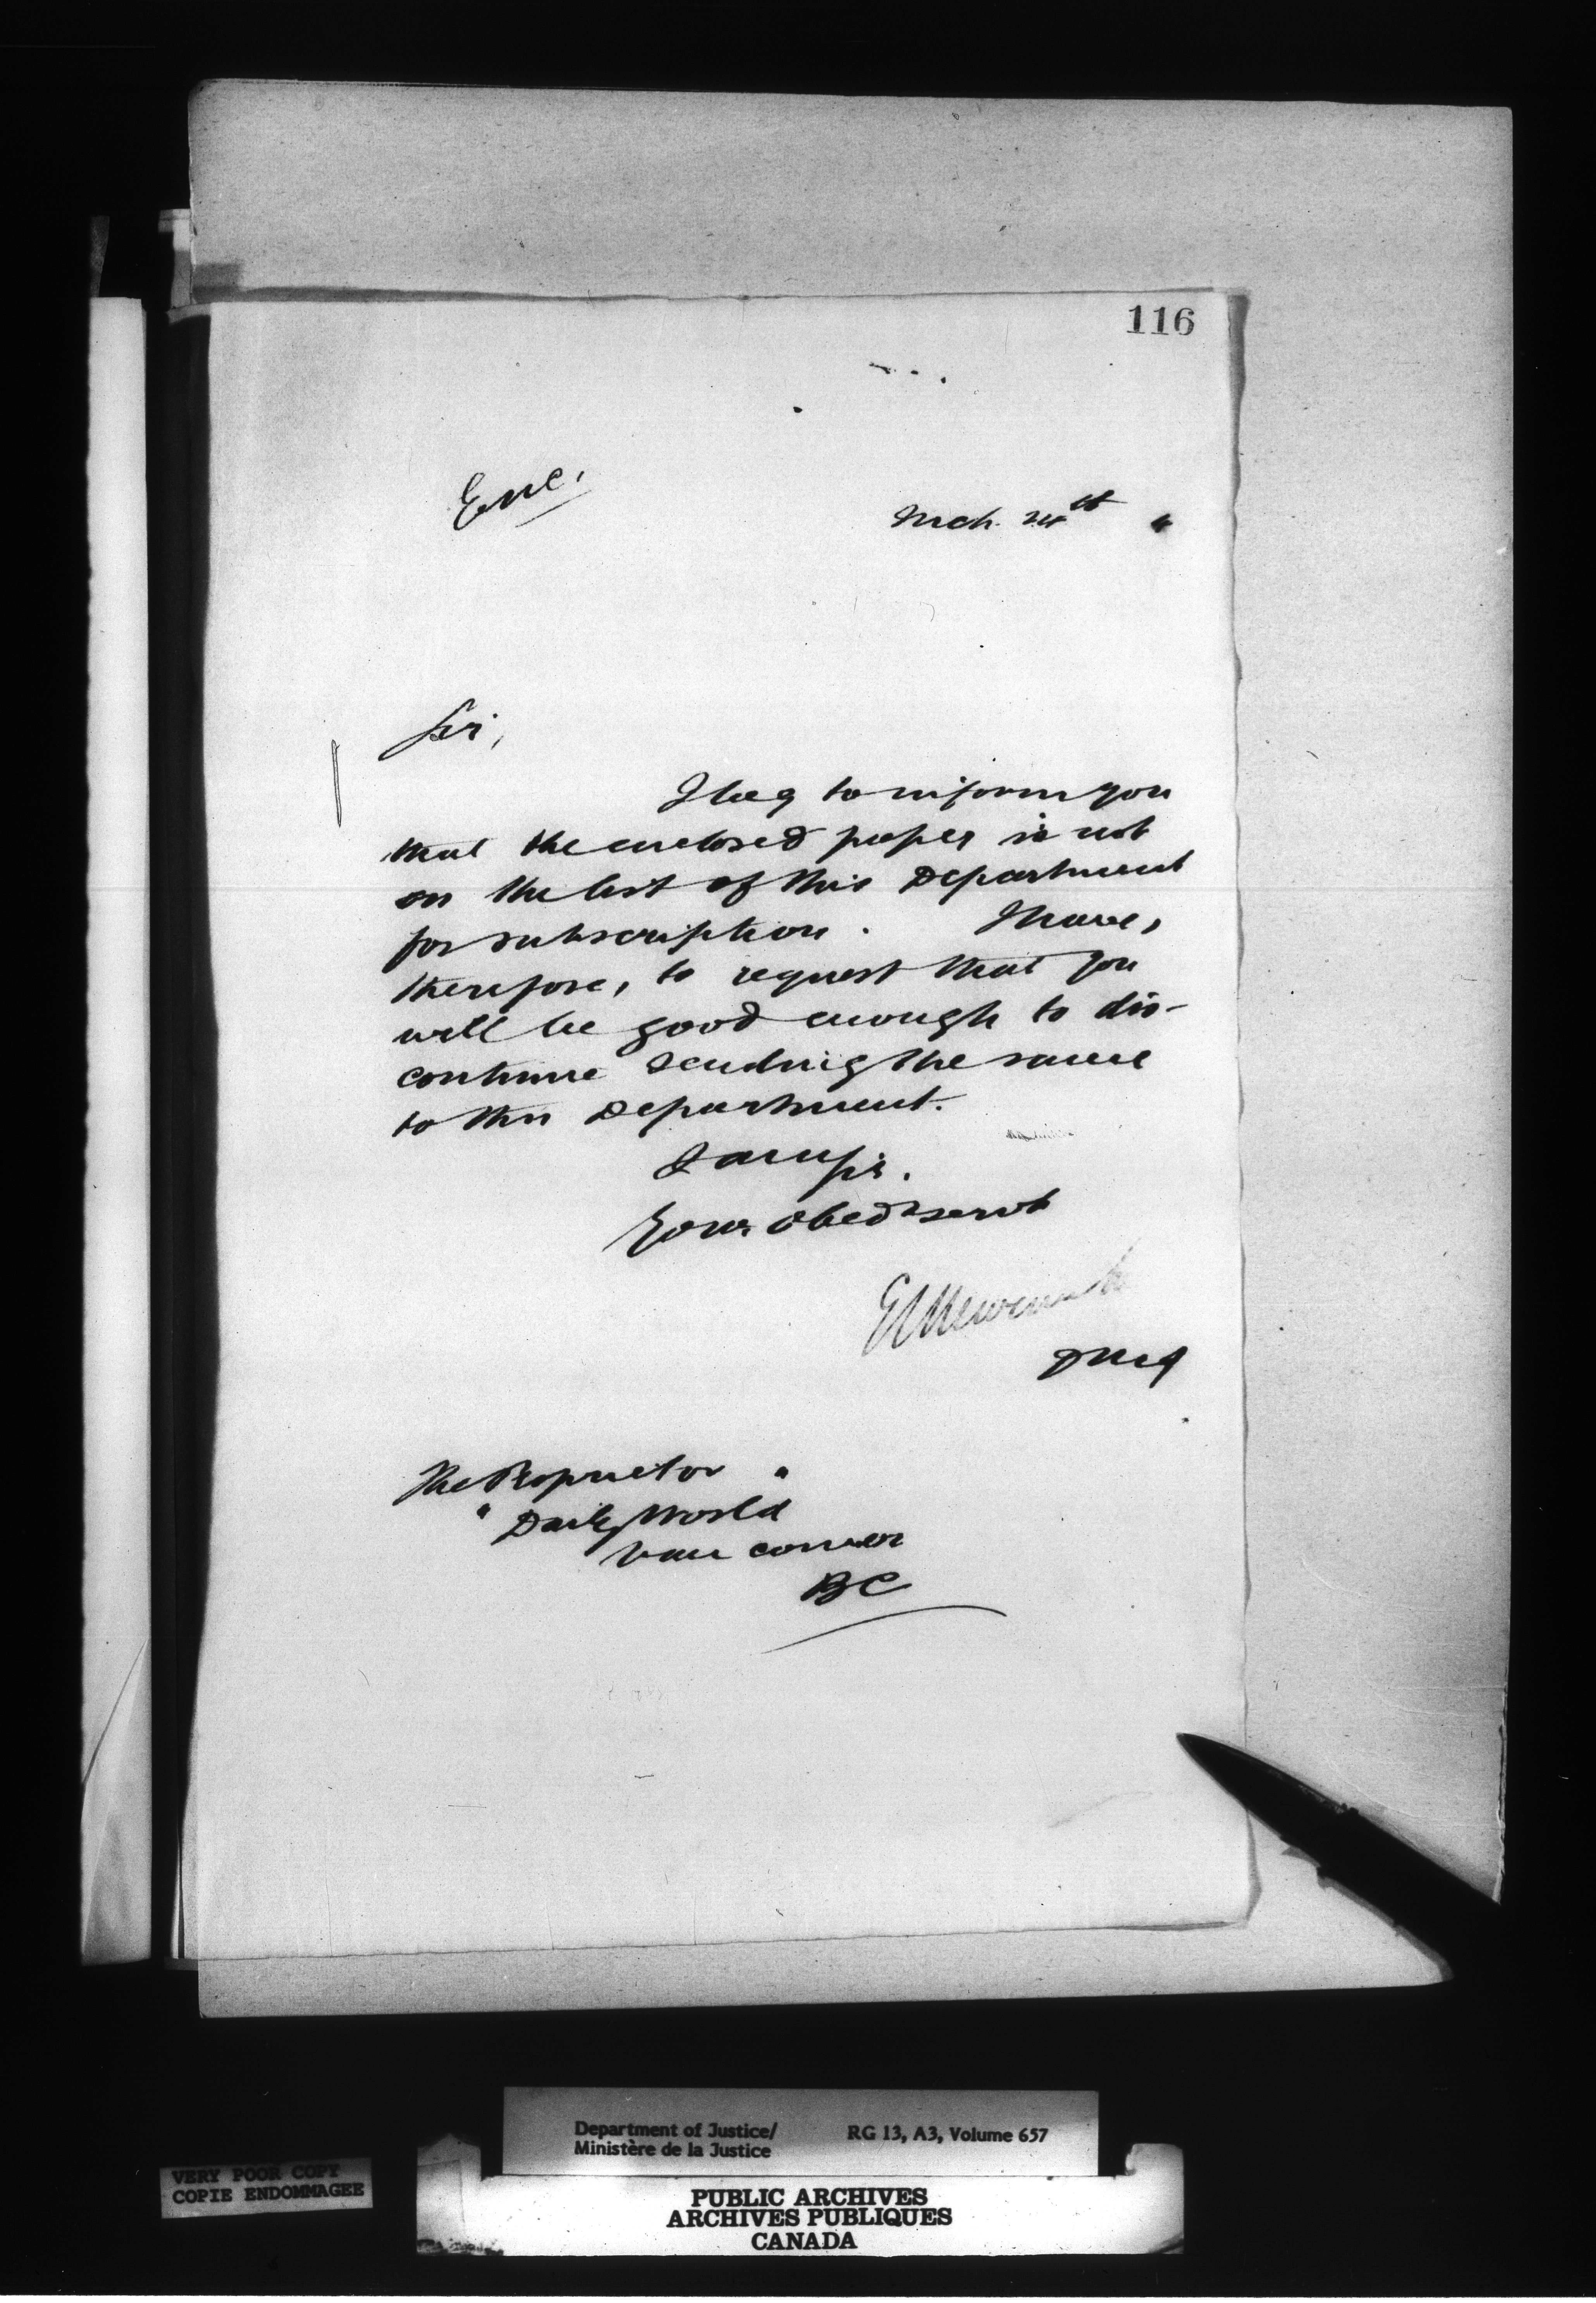 116
Enc.
Mch. 24th "
Sir,
I beg to inform you
that the enclosed paper is not
on the list of this Department
for subscription. I have,
therefore, to request that you
will be good enough to dis-
continue sending the same
to this Department.
I am Sir.
Your Obedt servt
E L Newcombe
DMJ
The Proprietor "
" Daily World
Vancouver
BC
Department of Justice/ RG 13, A3, Volume 657
Ministère de la Justice
VERY POOR COPY
COPIE ENDOMMAGEE
PUBLIC ARCHIVES
ARCHIVES PUBLIQUES
CANADA